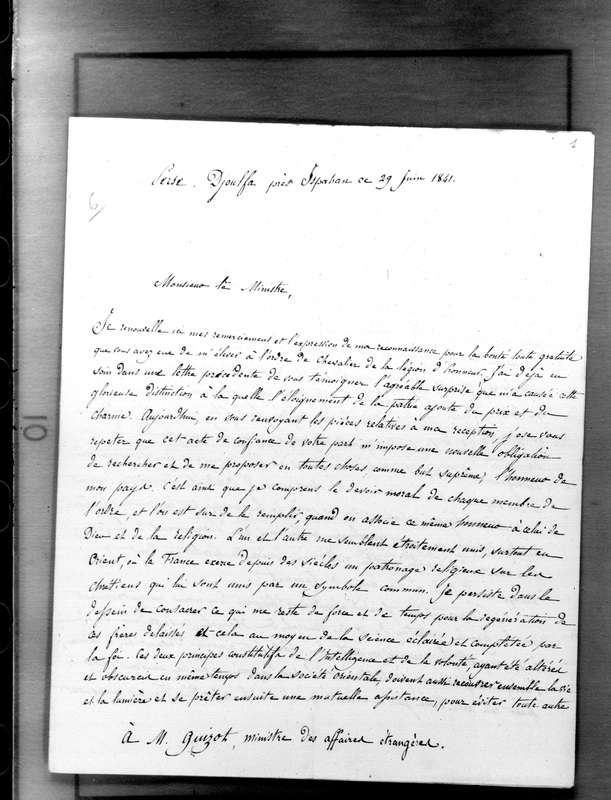 1
Perse. Djoulfa près Ispahan ce 29 Juin 1841.
6/
Monsieur le Ministre,
Je renouvelle ici mes remerciemens et l'expression de ma reconnaissance pour la bonté toute gratuite
que vous avez eue de m'élever à l'ordre de Chevalier de la légion d'honneur. J'ai déjà eu
soin dans une lettre précédente de vous témoigner l'agréable surprise que m'a causée cette
glorieuse distinction à la quelle l'éloignement de la patrie ajoute du prix et du
charme. Aujourdhui, en vous renvoyant les pièces relatives à ma reception, j'ose vous
repeter que cet acte de confiance de votre part m'impose une nouvelle obligation
de rechercher et de me proposer en toutes choses, comme but suprême, l'honneur de
mon pays. c'est ainsi que je comprens le devoir moral de chaque membre de
l'ordre, et l'on est sur de le remplir, quand on associe ce même honneur à celui de
Dieu et de la religion. L'un et l'autre me semblent étroitement unis, surtout en
Orient, où la France exerce depuis des siècles un patronage religieux sur les
chrétiens qui lui sont unis par un symbole commun. Je persiste dans le
dessein de consacrer ce qui me reste de force et de temps pour la régénération de
ces frères délaissés et cela au moyen de la science éclairée et complétée par
la foi. Ces deux principes constitutifs de l'Intelligence et de la volonté, ayant été altérés
et obscurcis en même temps dans la société orientale, doivent aussi recouvrer ensemble la vie
et la lumière et se prêter ensuite une mutuelle assistance, pour éviter toute autre
à M. Guizot, ministre des affaires étrangères.
10